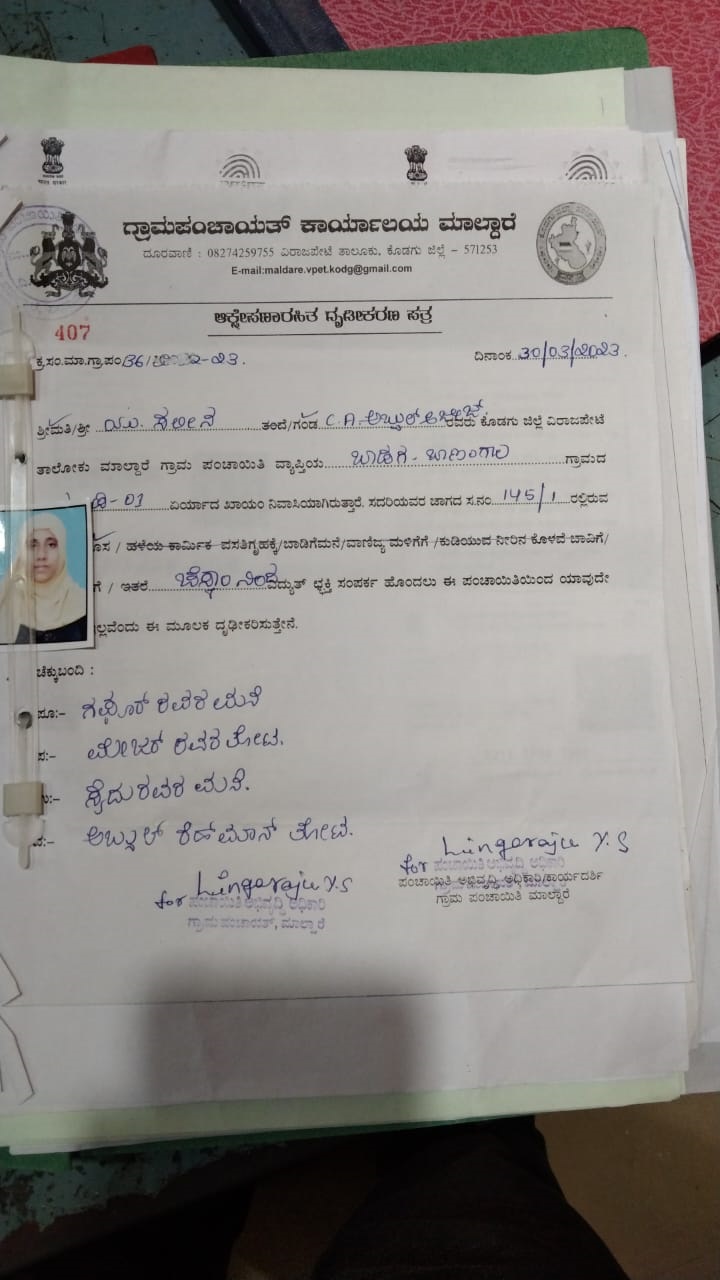 ಗ್ರಾಮಪಂಚಾಯತ್ ಕಾರ್ಯಾಲಯ ಮಾಲ್ದಾರೆ
ದೂರವಾಣಿ : 08274259755 ವಿರಾಜಪೇಟೆ ತಾಲೂಕು, ಕೊಡಗು ಜಿಲ್ಲೆ - 571253
E-mail:maldare.vpet.kodg@gmail.com
ಆಕ್ಷೇಪಣಾರಹಿತ ದೃಡೀಕರಣ ಪತ್ರ
407
ಕ್ರ.ಸಂ.ಮಾ.ಗ್ರಾ.ಪಂ 136/ -23. ದಿನಾಂಕ..30/03/2023.
ಶ್ರೀಮತಿ/ಶ್ರೀ ಯು. ತಂದೆ/ಗಂಡ C.A ರವರು ಕೊಡಗು ಜಿಲ್ಲೆ ವಿರಾಜಪೇಟೆ
ತಾಲೋಕು ಮಾಲ್ದಾರೆ ಗ್ರಾಮ ಪಂಚಾಯಿತಿ ವ್ಯಾಪ್ತಿಯ ಬಾಡಗ - ಬಾಣಂಗಾಲ ಗ್ರಾಮದ
-01 ಏರ್ಯಾದ ಖಾಯಂ ನಿವಾಸಿಯಾಗಿರುತ್ತಾರೆ. ಸದರಿಯವರ ಜಾಗದ ಸ.ನಂ. 145/1 ರಲ್ಲಿರುವ
ೊಸ / ಹಳೆಯ ಕಾರ್ಮಿಕ ವಸತಿಗೃಹಕ್ಕೆ/ಬಾಡಿಗೆಮನೆ/ವಾಣಿಜ್ಯ ಮಳಿಗೆಗೆ /ಕುಡಿಯುವ ನೀರಿನ ಕೊಳವೆ ಬಾವಿಗೆ/
ಗೆ / ಇತರೆ ವಿದ್ಯುತ್ ಶಕ್ತಿ ಸಂಪರ್ಕ ಹೊಂದಲು ಈ ಪಂಚಾಯಿತಿಯಿಂದ ಯಾವುದೇ
ಲ್ಲವೆಂದು ಈ ಮೂಲಕ ದೃಢೀಕರಿಸುತ್ತೇನೆ.
ಚೆಕ್ಕುಬಂದಿ :
ಪೂ:- ಗಫೂರ್ ರವರ ಮನೆ
ಪ:- ಮೇಜರ್ ರವರ ತೋಟ.
ಉ:- ಸೈದುರವರ ಮನೆ.
ದ:- ಅಬ್ದುಲ್ ರೆಹ್ಮಾನ್ ತೋಟ.
Lingaraju Y.S
for ಪಂಚಾಯಿತಿ ಅಭಿವೃದ್ಧಿ ಅಧಿಕಾರಿ
ಪಂಚಾಯಿತಿ ಅಭಿವೃದ್ಧಿ ಅಧಿಕಾರಿ/ಕಾರ್ಯದರ್ಶಿ
ಗ್ರಾಮ ಪಂಚಾಯಿತಿ ಮಾಲ್ದಾರೆ
Lingaraju Y.S
for ಪಂಚಾಯಿತಿ ಅಭಿವೃದ್ಧಿ ಅಧಿಕಾರಿ
ಗ್ರಾಮ ಪಂಚಾಯತ್, ಮಾಲ್ದಾರೆ